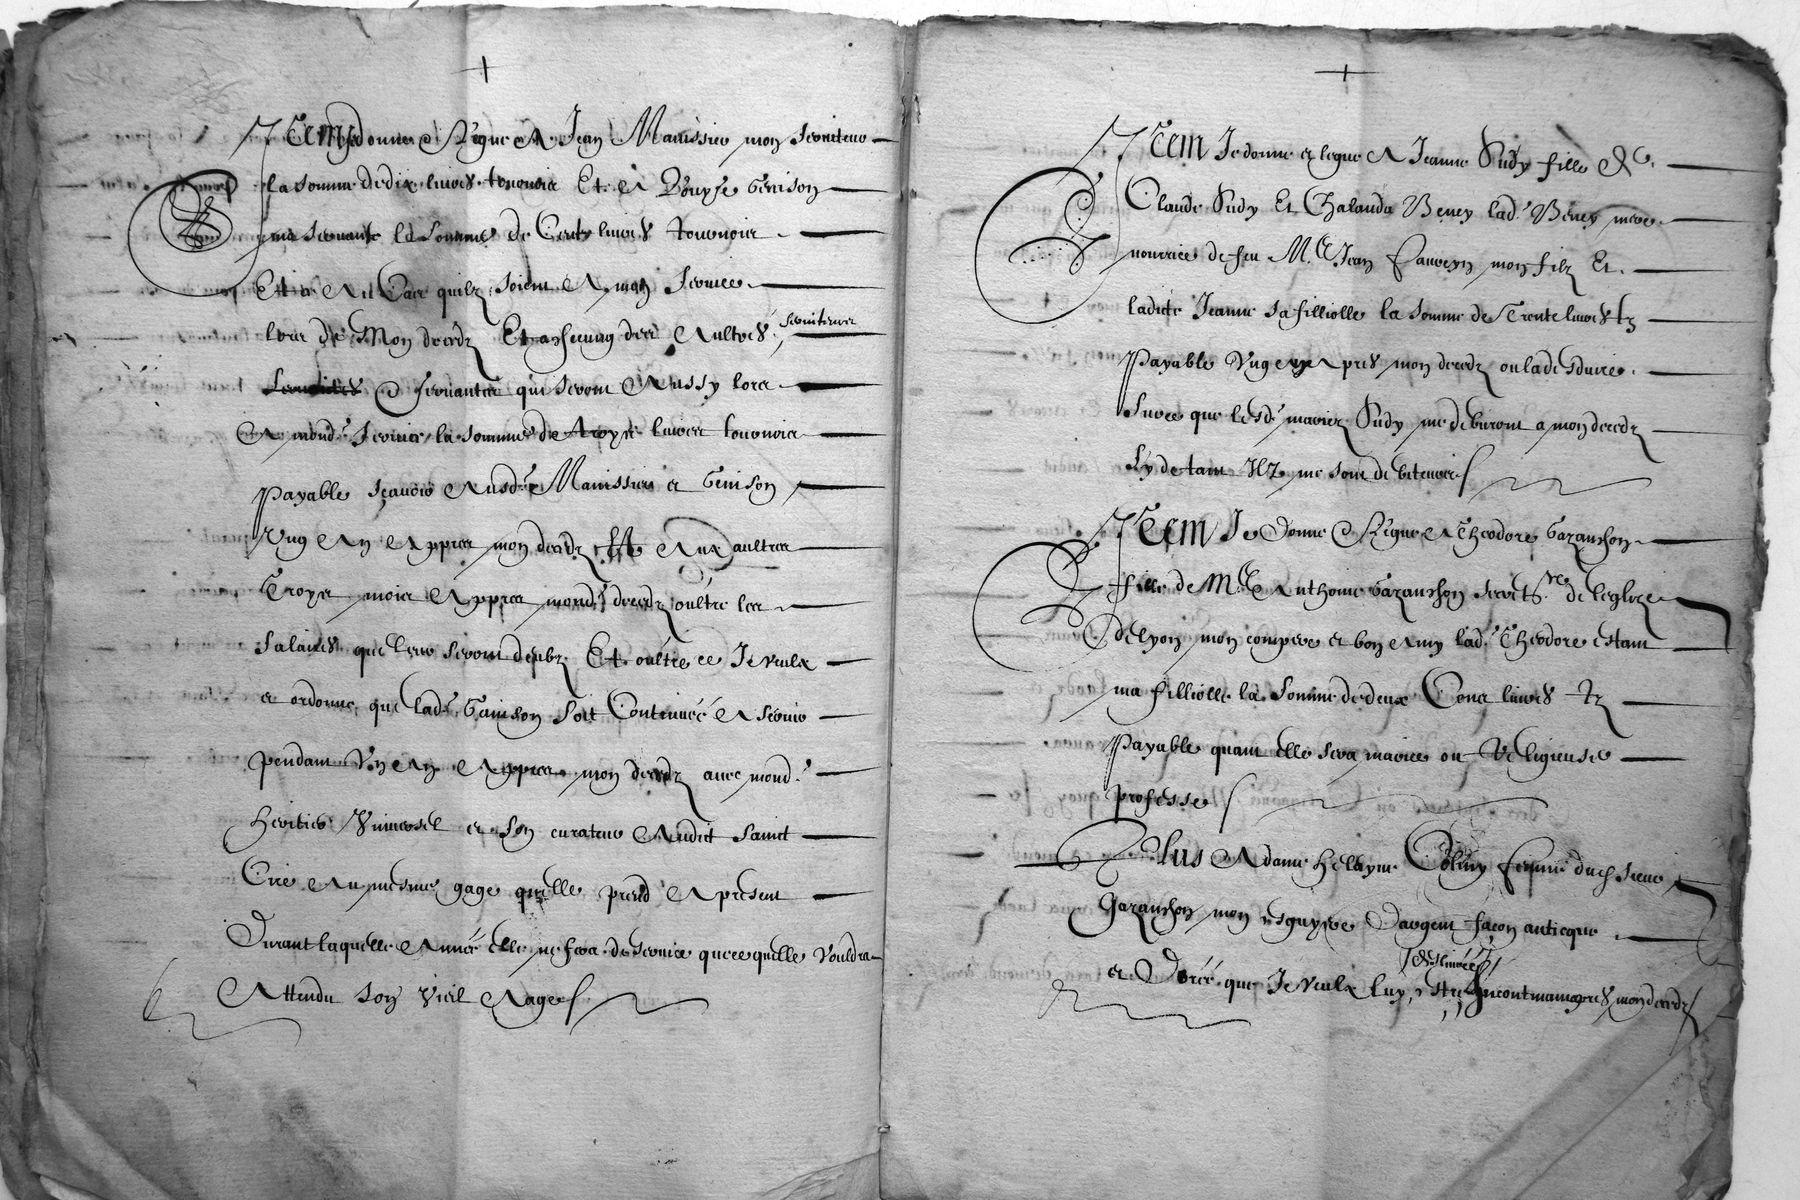 Item Je donne & legue A Jean Manissier mon serviteur
la somme de dix livres tournois Et A Genison
ma servante la somme de Cent livres tournois
Et ce Au Cas quilz soient A mon service
lors de Mon decedz Et aschung des Aultres serviteurs
& servantes qui seront Aussy lors
A mond. service la somme de troys livres tournois
Payable sçavoir Ausd. Manissier et Genison
Ung An Appres mon decedz Aux aultres
Troys mois Appres mond. decedz oultre les
salaires que leur seront deubz Et oultre ce Je veulx
et ordonne que lad. Genison soit Continuée A servir
pendant Un An Appres mon decedz avec mond.
Heritier Universel et son curateur Audict Sainct
Cire Au mesme gage quelle prend A present
Durant laquelle Année elle ne fera de service que ce quelle vouldra
Attendu son vieil Aage
Item Je donne et legue A Jeanne Sudy fille de
Claude Sudy Et Chalanda Beney lad. Beney mere
nourrice de feu M.e Jean mon filz Et
ladicte Jeanne sa filliolle la somme de Trente livres tz
Payable Ung an Apres mon decedz ou la desduire
Surce que lesd. mariez Sudy me debvront a mon decedz
Sy de tant Ilz me sont debiteurs
Item Je Donne & legue A Theodore Garanson
fille de M.e Anthoine Garanson secret.re de leglize
De lyon mon compere et bon Amy lad. Theodore estant
ma filliolle la somme de deux Cens livres tz
Payable quant elle sera mariee ou Religieuse
professe
Plus A dame Helayne femme dud. sieur
Garanson mon esguyere Dargent façon anticque
et Dorée que Je veulx luy estre incontinant apres mon decedz